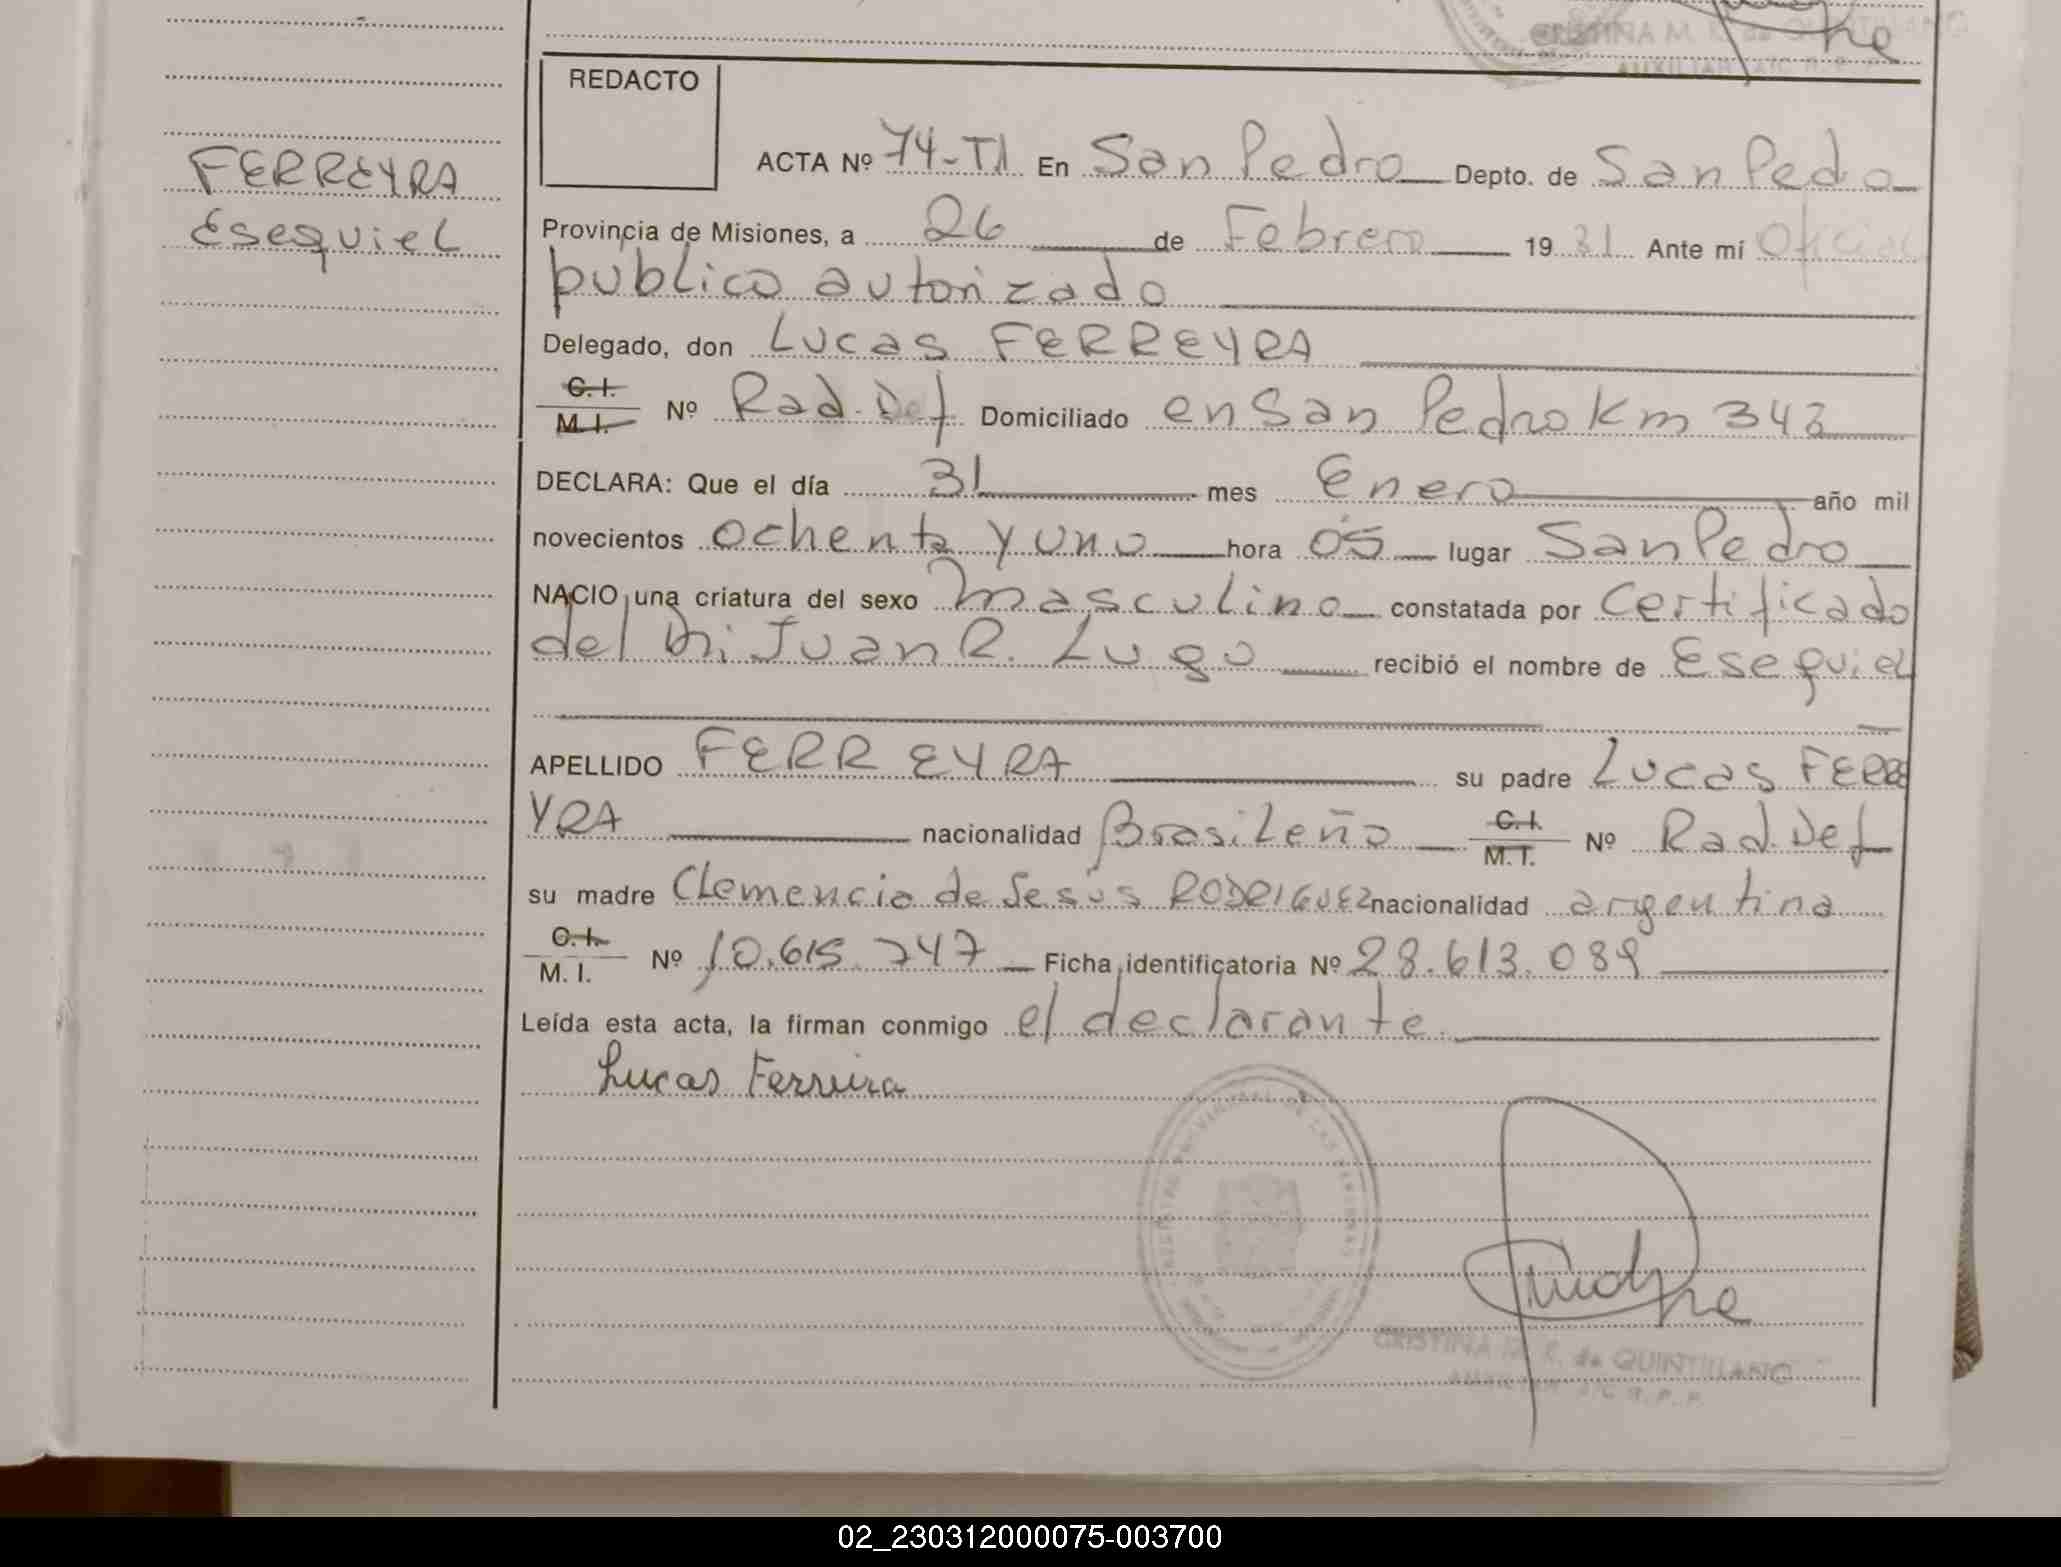 CRISTINA M. E. de QUINTILLANO
AUXILIAR A/C R.P.P.
REDACTO
ACTA Nº 74-T1 En San Pedro Depto. de San Pedo
FERREYRA
Esequiel
Provincia de Misiones, a 26 de Febrero 1981 Ante mí Oficial
publico autorizado
Delegado, don Lucas FERREYRA
C. I.
M. I. Nº Rad. Def Domiciliado en San Pedro Km 342
DECLARA: Que el día 31 mes Enero año mil
novecientos ochenta y uno hora 05 lugar San Pedro
NACIO una criatura del sexo masculino constatada por Certificado
del Dr. Juan R. Lugo recibió el nombre de Esequiel
APELLIDO FERREYRA su padre Lucas FERRE
YRA nacionalidad Brasileño C. I. M. I. Nº Rad. Def
su madre Clemencia de Jesús RODRIGUEZ nacionalidad argentina
C. I.
M. I. Nº 10.615.747 Ficha identificatoria Nº 28.613.089
Leída esta acta, la firman conmigo el declarante.
Lucas Ferreira
REGISTRO PROVINCIAL DE LAS PERSONAS
CRISTINA M. E. de QUINTILLANO
AUXILIAR A/C R.P.P.
02_230312000075-003700